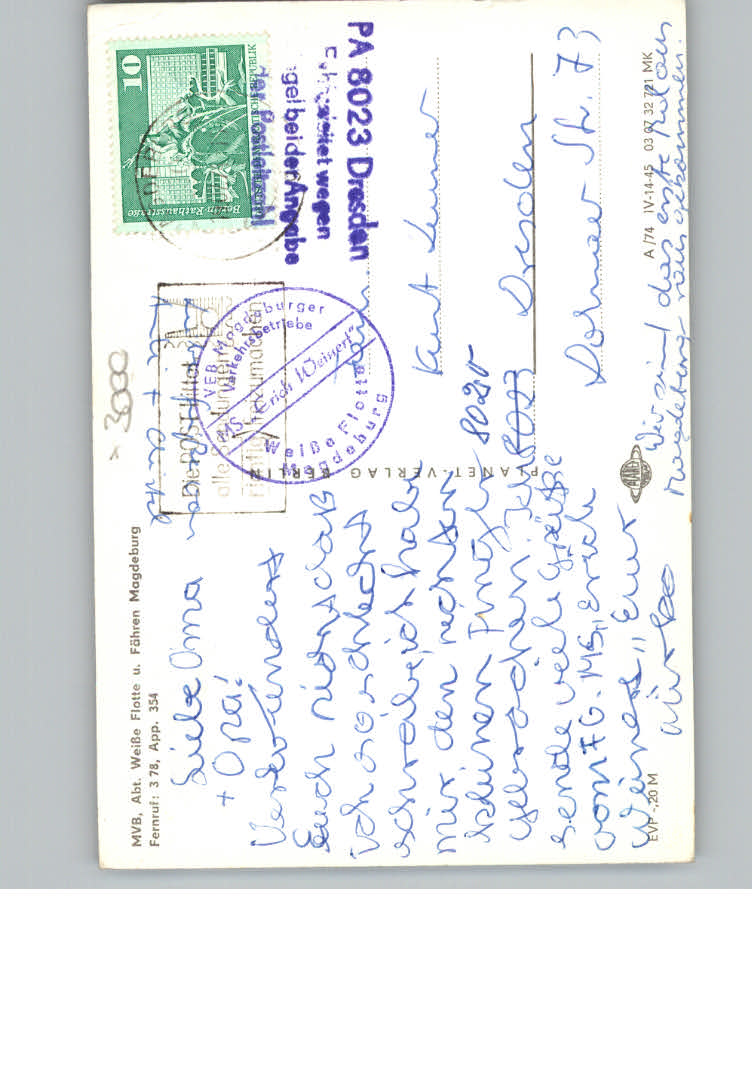 MVB, Abt. Weiße Flotte u. Fähren Magdeburg
Fernruf: 3 78, App. 354
Liebe Oma
+ Opa!
Verwundert
Euch nicht daß
ich so schlecht
schreibe, ich habe
mir den rechten
kleinen Finger
gebrochen. Ich
sende viele Grüße
vom FG. MS „Erich
Weinert" Euer
Mirko
EVP -,20 M
PLANET-VERLAG BERLIN
PLANET
10
DEUTSCHE DEMOKRATISCHE REPUBLIK
Berlin-Rathausstraße
PA 8023 Dresden
wegen
Angabe
der Postleitzahl
Die POST bittet
alle Sendungen
VEB Magdeburger
Verkehrsbetriebe
MS „Erich Weinert"
Weiße Flotte
Magdeburg
Kurt
8020
8023 Dresden
Str. 73
A /74 IV-14-45 03 07 32 721 MK
Wir sind das erste Mal aus
Magdeburg rausgekommen.
3000